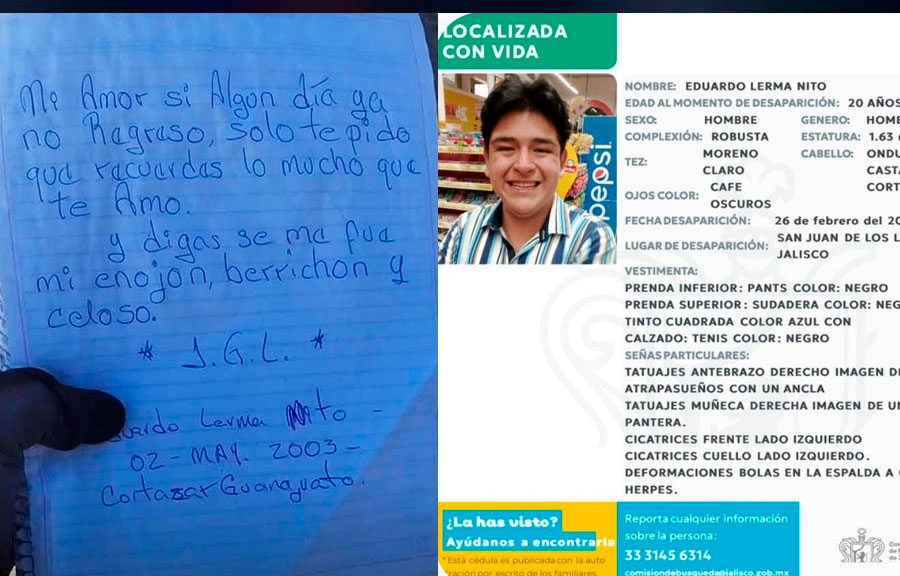 Mi Amor si Algon día ya
no Ragraso, solo te pido
que racuardas lo mucho que
te Amo.
y digas se ma fua
mi enojon, berrichon y
celoso.
* J.G.L. *
Lerma Nito -
02 - MAY. 2003 -
Cortazar Guanajuato.
LOCALIZADA
CON VIDA
pepsi
NOMBRE: EDUARDO LERMA NITO
EDAD AL MOMENTO DE DESAPARICIÓN: 20 AÑOS
SEXO: HOMBRE GENERO: HOMB
COMPLEXIÓN: ROBUSTA ESTATURA: 1.63
TEZ: MORENO CLARO CABELLO: ONDU
CASTA
CORT
OJOS COLOR: CAFE OSCUROS
FECHA DESAPARICIÓN: 26 de febrero del 20
LUGAR DE DESAPARICIÓN: SAN JUAN DE LOS L
JALISCO
VESTIMENTA:
PRENDA INFERIOR: PANTS COLOR: NEGRO
PRENDA SUPERIOR: SUDADERA COLOR: NEG
TINTO CUADRADA COLOR AZUL CON
CALZADO: TENIS COLOR: NEGRO
SEÑAS PARTICULARES:
TATUAJES ANTEBRAZO DERECHO IMAGEN DE
ATRAPASUEÑOS CON UN ANCLA
TATUAJES MUÑECA DERECHA IMAGEN DE UN
PANTERA.
CICATRICES FRENTE LADO IZQUIERDO
CICATRICES CUELLO LADO IZQUIERDO.
DEFORMACIONES BOLAS EN LA ESPALDA A
HERPES.
¿La has visto?
Ayúdanos a encontrarla
*Está cédula es publicada con la auto
ización por escrito de los familiares.
Reporta cualquier información
sobre la persona:
33 3145 6314
comisiondebusqueda@jalisco.gob.mx